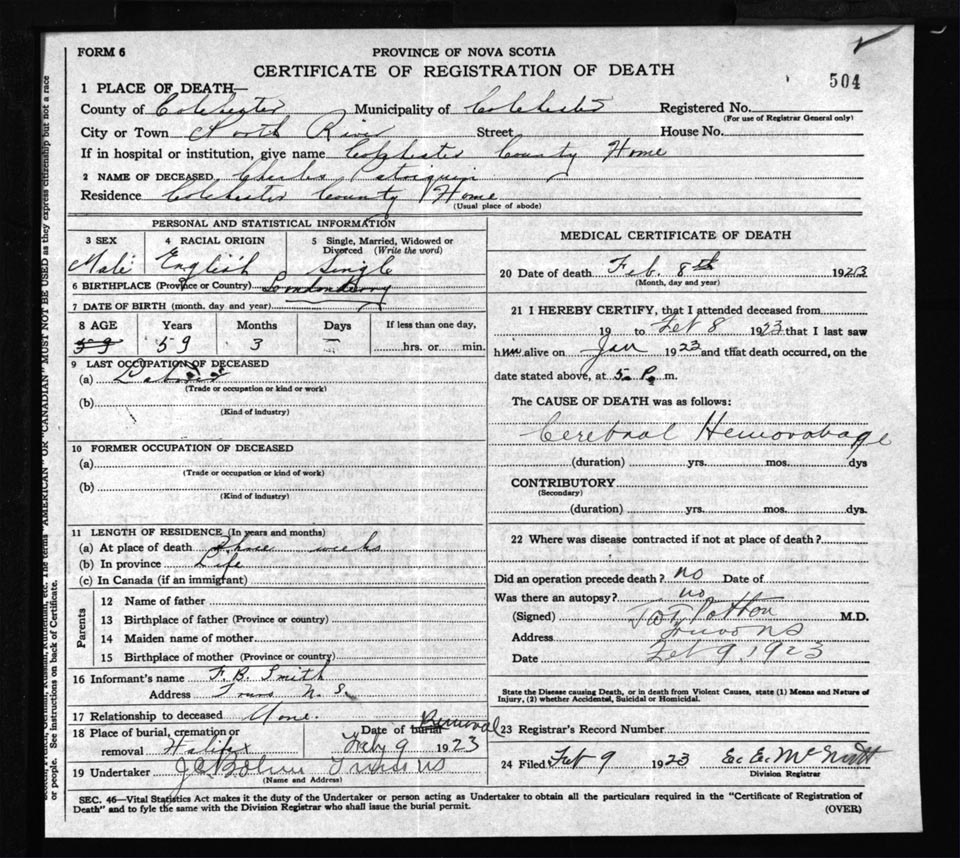 FORM 6
PROVINCE OF NOVA SCOTIA
CERTIFICATE OF REGISTRATION OF DEATH
504
1 PLACE OF DEATH—
County of Colchester Municipality of Colchester Registered No.
(For use of Registrar General only)
City or Town North River Street House No.
If in hospital or institution, give name Colchester County Home
2 NAME OF DECEASED Charles Patriquin
Residence Colchester County Home
(Usual place of abode)
PERSONAL AND STATISTICAL INFORMATION
3 SEX 4 RACIAL ORIGIN 5 Single, Married, Widowed or Divorced (Write the word)
Male English Single
6 BIRTHPLACE (Province or Country) Londonderry
7 DATE OF BIRTH (month, day and year)
8 AGE Years Months Days If less than one day,
59 59 3 hrs. or min.
9 LAST OCCUPATION OF DECEASED
(a) Laborer
(Trade or occupation or kind or work)
(b)
(Kind of industry)
10 FORMER OCCUPATION OF DECEASED
(a)
(Trade or occupation or kind of work)
(b)
(Kind of industry)
11 LENGTH OF RESIDENCE (In years and months)
(a) At place of death Three weeks
(b) In province Life
(c) In Canada (if an immigrant)
Parents
12 Name of father
13 Birthplace of father (Province or country)
14 Maiden name of mother
15 Birthplace of mother (Province or country)
16 Informant's name F. B. Smith
Address Truro N. S.
17 Relationship to deceased None.
18 Place of burial, cremation or removal Halifax
Date of burial Removal
Feby 9 1923
19 Undertaker
(Name and Address)
MEDICAL CERTIFICATE OF DEATH
20 Date of death Feb. 8th 1923
(Month, day and year)
21 I HEREBY CERTIFY, that I attended deceased from
19 to Feb 8 1923 that I last saw
him alive on Jan 1923 and that death occurred, on the
date stated above, at 5. P. m.
The CAUSE OF DEATH was as follows:
Cerebral Hemorahage
(duration) yrs. mos. dys
CONTRIBUTORY
(Secondary)
(duration) yrs. mos. dys.
22 Where was disease contracted if not at place of death?
Did an operation precede death? no Date of
Was there an autopsy? no
(Signed) Patton M.D.
Address Truro NS
Date Feb 9, 1923
State the Disease causing Death, or in death from Violent Causes, state (1) Means and Nature of
Injury, (2) whether Accidental, Suicidal or Homicidal.
23 Registrar's Record Number
24 Filed Feb 9 1923 E. E. McNutt
Division Registrar
SEC. 46—Vital Statistics Act makes it the duty of the Undertaker or person acting as Undertaker to obtain all the particulars required in the "Certificate of Registration of
Death" and to fyle the same with the Division Registrar who shall issue the burial permit.
(OVER)
etc. The terms "AMERICAN" OR "CANADIAN" MUST NOT BE USED as they express citizenship but not a race
or people. See instructions on back of Certificate.